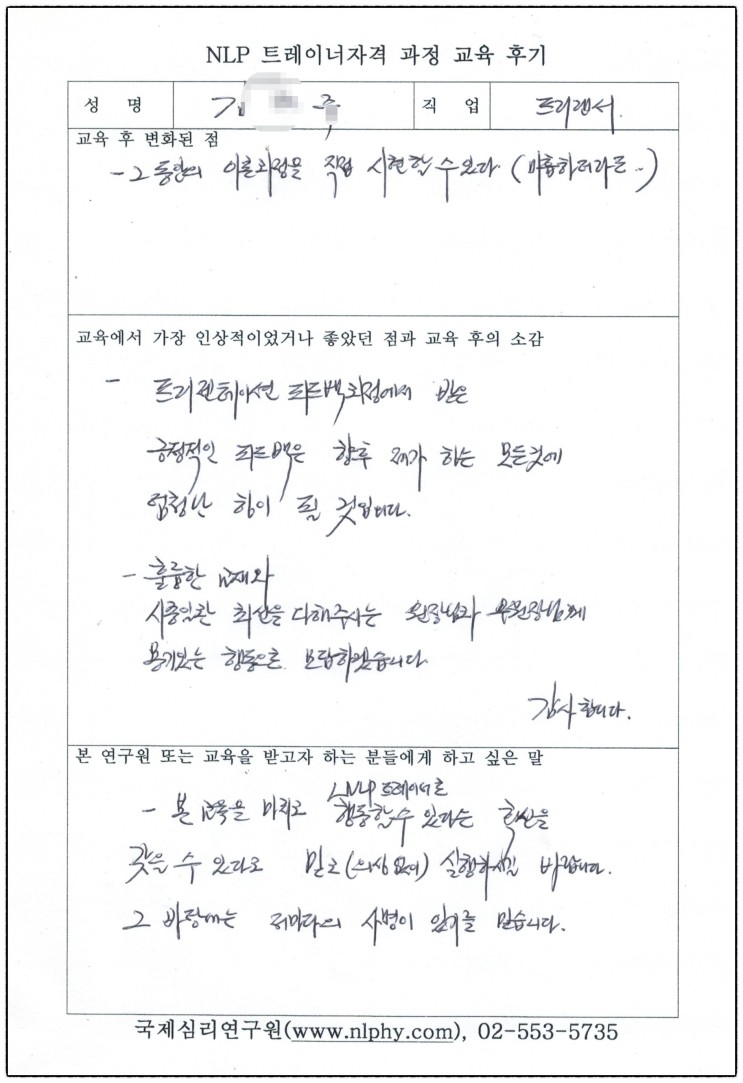 NLP 트레이너자격 과정 교육 후기
성 명
직 업 프리랜서.
교육 후 변화된 점
- 그동안의 이론과정을 직접 시현할 수 있다 (미흡하더라도..)
교육에서 가장 인상적이었거나 좋았던 점과 교육 후의 소감
- 프리젠테이션 피드백과정에서 받은
긍정적인 피드백은 향후 제가 하는 모든것에
엄청난 힘이 될 것입니다.
- 훌륭한 교재와
시종일관 최선을 다해주시는 원장님과 부원장님께
용기있는 행동으로 보답하겠습니다.
감사합니다.
본 연구원 또는 교육을 받고자 하는 분들에게 하고 싶은 말
NLP 트레이너로
- 본 교육을 마치고 행동할 수 있다는 확신을
갖을 수 있다고 믿고 (의심없이) 실행하시길 바랍니다.
그 바탕에는 저마다의 사명이 있기를 믿습니다.
국제심리연구원(www.nlphy.com), 02-553-5735